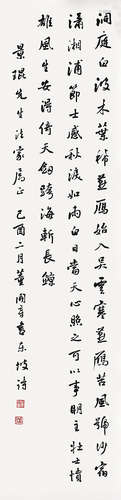 洞庭白波木葉稀燕鴈始入吳雲寒燕鴈苦風號沙宿
瀟湘浦節士感秋淚如雨白日當天心照之可以事明主壯士憤
雄風生安得倚天劍跨海斬長鯨
景琨先生法家屬正己酉二月董開章書